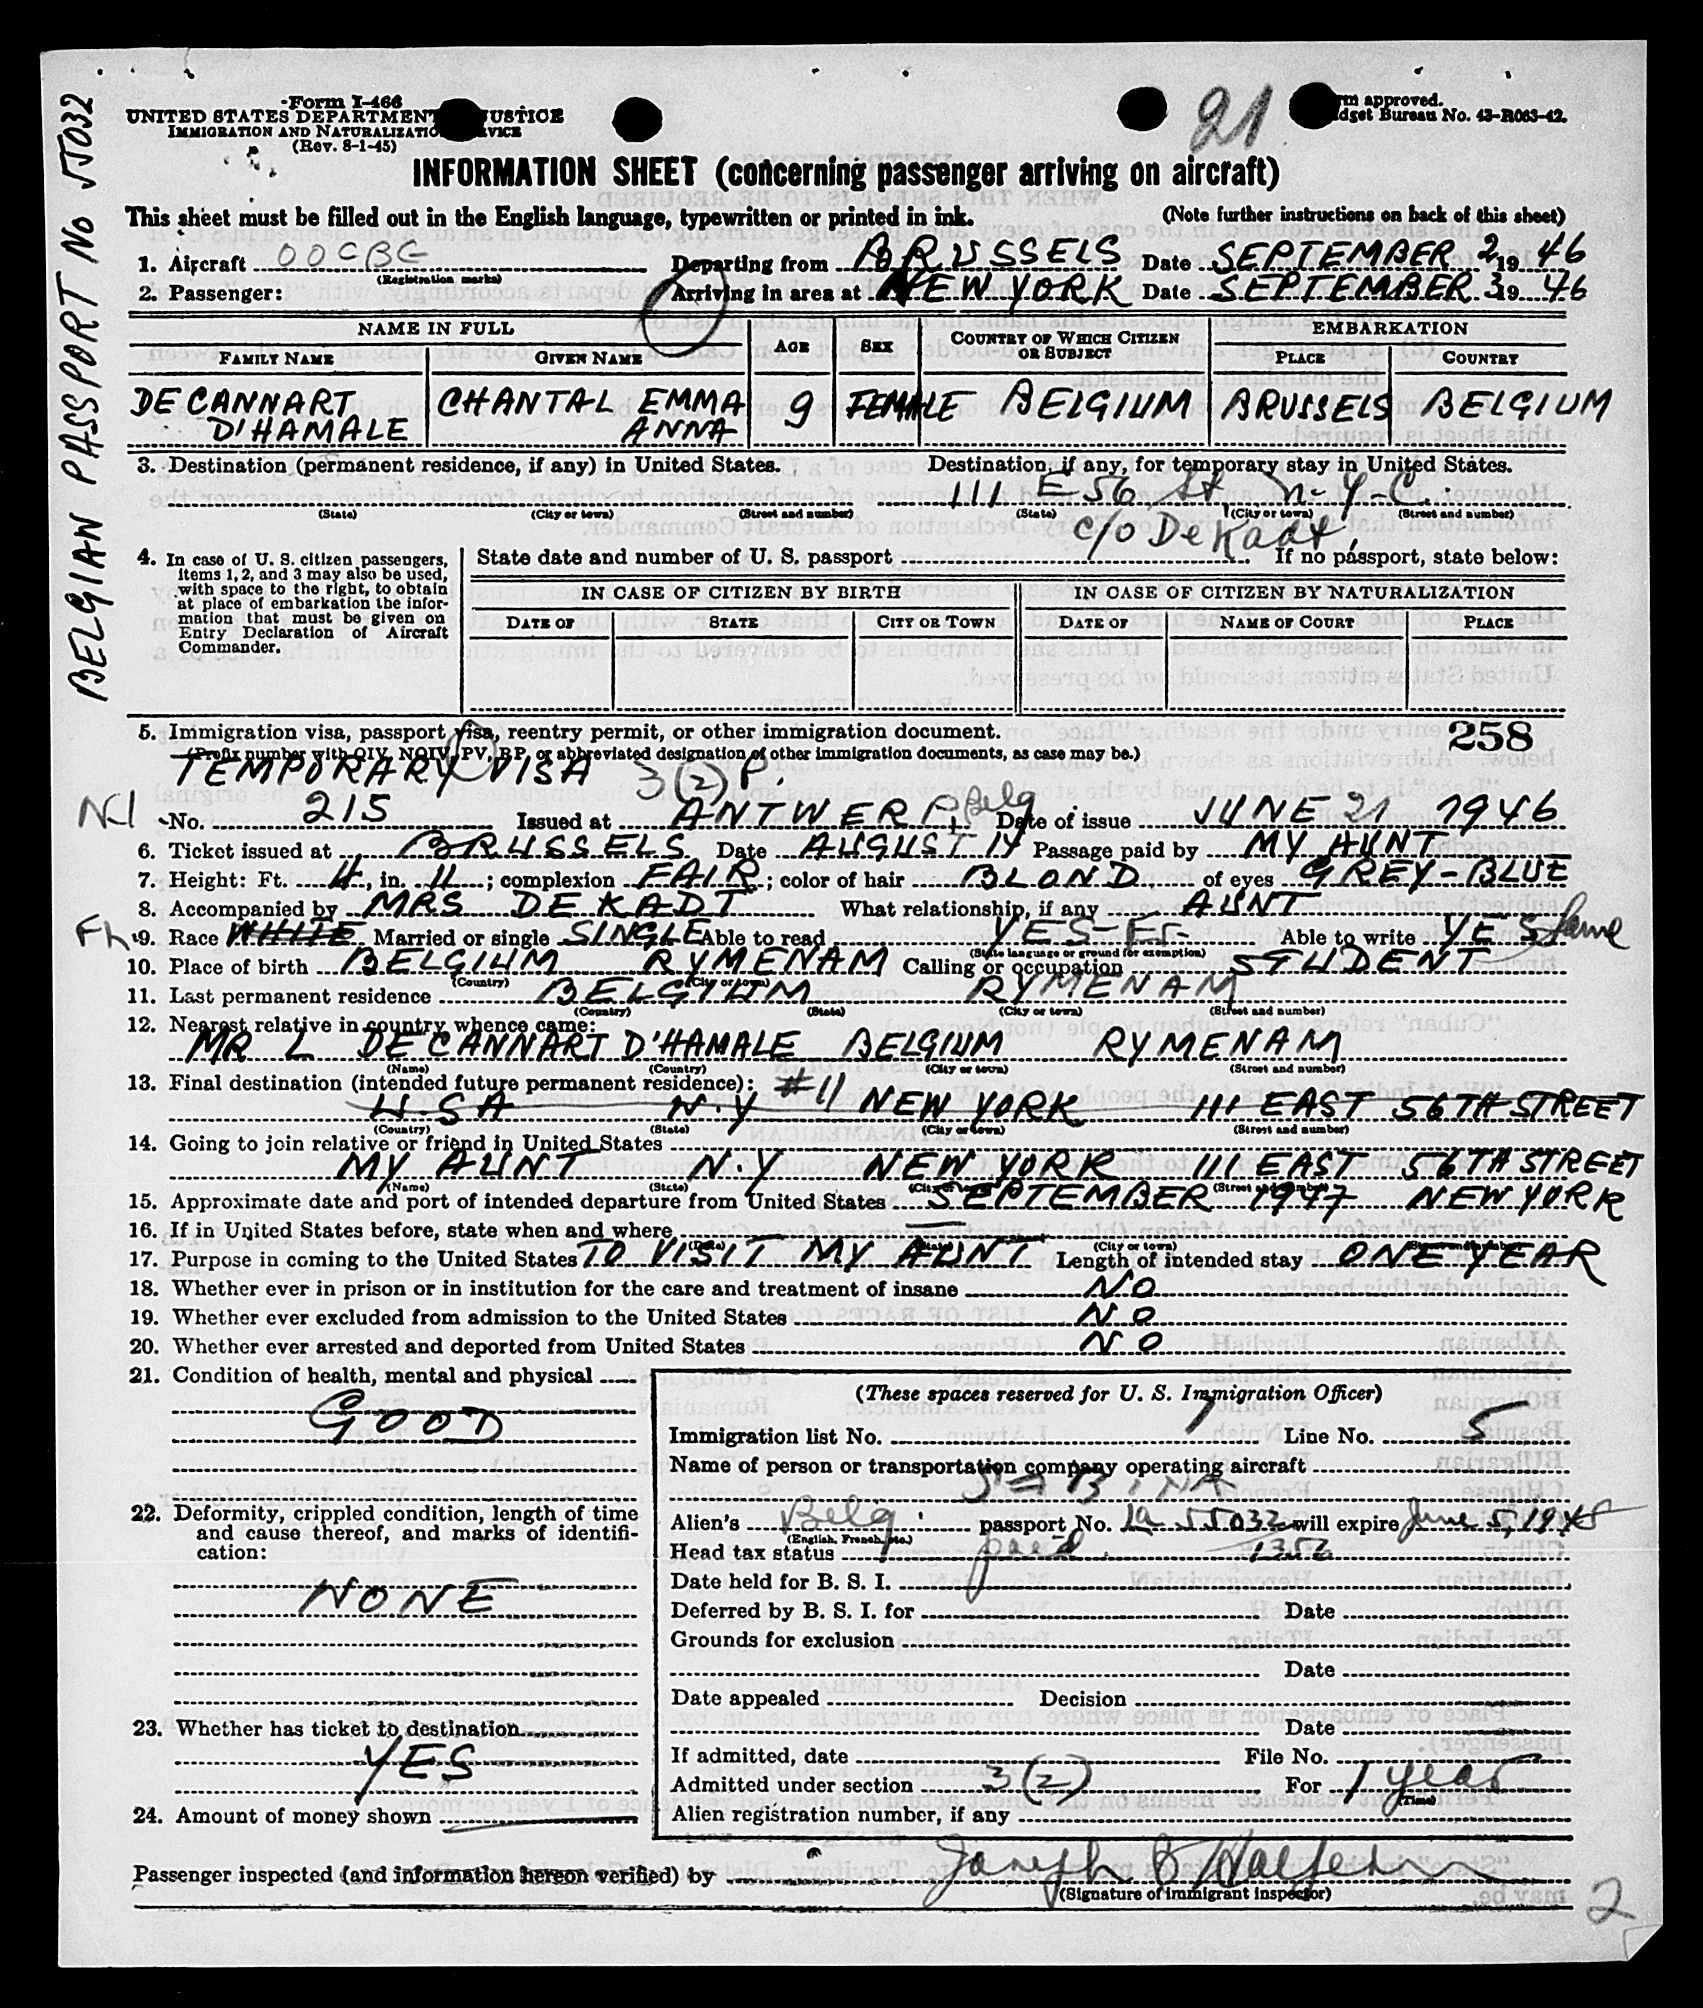 Form I-466
UNITED STATES DEPARTMENT JUSTICE
IMMIGRATION AND NATURALIZATION SERVICE
(Rev. 8-1-45)
21
Form approved.
Budget Bureau No. 43-R063-42.
BELGIAN PASSPORT No 55032
INFORMATION SHEET (concerning passenger arriving on aircraft)
This sheet must be filled out in the English language, typewritten or printed in ink. (Note further instructions on back of this sheet)
1. Aircraft OOCBG Departing from BRUSSELS Date SEPTEMBER 2 19 46
(Registration marks)
2. Passenger: Arriving in area at NEW YORK Date SEPTEMBER 3 19 46
NAME IN FULL AGE SEX COUNTRY OF WHICH CITIZEN OR SUBJECT EMBARKATION
FAMILY NAME GIVEN NAME PLACE COUNTRY
DE CANNART CHANTAL EMMA 9 FEMALE BELGIUM BRUSSELS BELGIUM
D'HAMALE ANNA
3. Destination (permanent residence, if any) in United States. Destination, if any, for temporary stay in United States.
111 E 56 St N-Y-C.
(State) (City or town) (Street and number) (State) (City or town) (Street and number)
c/o De Kadt,
4. In case of U. S. citizen passengers, items 1, 2, and 3 may also be used, with space to the right, to obtain at place of embarkation the information that must be given on Entry Declaration of Aircraft Commander.
State date and number of U. S. passport If no passport, state below:
IN CASE OF CITIZEN BY BIRTH IN CASE OF CITIZEN BY NATURALIZATION
DATE OF STATE CITY OR TOWN DATE OF NAME OF COURT PLACE
5. Immigration visa, passport visa, reentry permit, or other immigration document. 258
(Prefix number with QIV, NQIV, PV, RP, or abbreviated designation of other immigration documents, as case may be.)
TEMPORARY VISA 3(2) P.
NI No. 215 Issued at ANTWERP Belg Date of issue JUNE 21 1946
6. Ticket issued at BRUSSELS Date AUGUST 14 Passage paid by MY AUNT
7. Height: Ft. 4, in. 11; complexion FAIR; color of hair BLOND of eyes GREY-BLUE
8. Accompanied by MRS DE KADT What relationship, if any AUNT
Fh 9. Race WHITE Married or single SINGLE Able to read YES-Fr- Able to write YES Same
(State language or ground for exemption)
10. Place of birth BELGIUM RYMENAM Calling or occupation STUDENT
(Country) (City or town)
11. Last permanent residence BELGIUM RYMENAM
(Country) (State) (City or town) (Street and number)
12. Nearest relative in country whence came:
MR L DE CANNART D'HAMALE BELGIUM RYMENAM
(Name) (Country) (City or town) (Street and number)
13. Final destination (intended future permanent residence): #11
U.S.A N.Y NEW YORK 111 EAST 56TH STREET
(Country) (State) (City or town) (Street and number)
14. Going to join relative or friend in United States
MY AUNT N.Y NEW YORK 111 EAST 56TH STREET
(Name) (State) (City or town) (Street and number)
15. Approximate date and port of intended departure from United States SEPTEMBER 1947 NEW YORK
16. If in United States before, state when and where
(Date) (State) (City or town) (Street and number)
17. Purpose in coming to the United States TO VISIT MY AUNT Length of intended stay ONE YEAR
18. Whether ever in prison or in institution for the care and treatment of insane NO
19. Whether ever excluded from admission to the United States NO
20. Whether ever arrested and deported from United States NO
21. Condition of health, mental and physical
GOOD
22. Deformity, crippled condition, length of time and cause thereof, and marks of identification:
NONE
23. Whether has ticket to destination
YES
24. Amount of money shown
(These spaces reserved for U. S. Immigration Officer)
Immigration list No. 1 Line No. 5
Name of person or transportation company operating aircraft
SABENA
Alien's Belg. passport No. 55032 will expire June 5, 1948
(English, French, etc.)
Head tax status paid 1352
Date held for B. S. I.
Deferred by B. S. I. for Date
Grounds for exclusion
Date
Date appealed Decision
Date
If admitted, date File No.
Admitted under section 3(2) For 1 year
(Time)
Alien registration number, if any
Passenger inspected (and information hereon verified) by Joseph
(Signature of immigrant inspector)
2